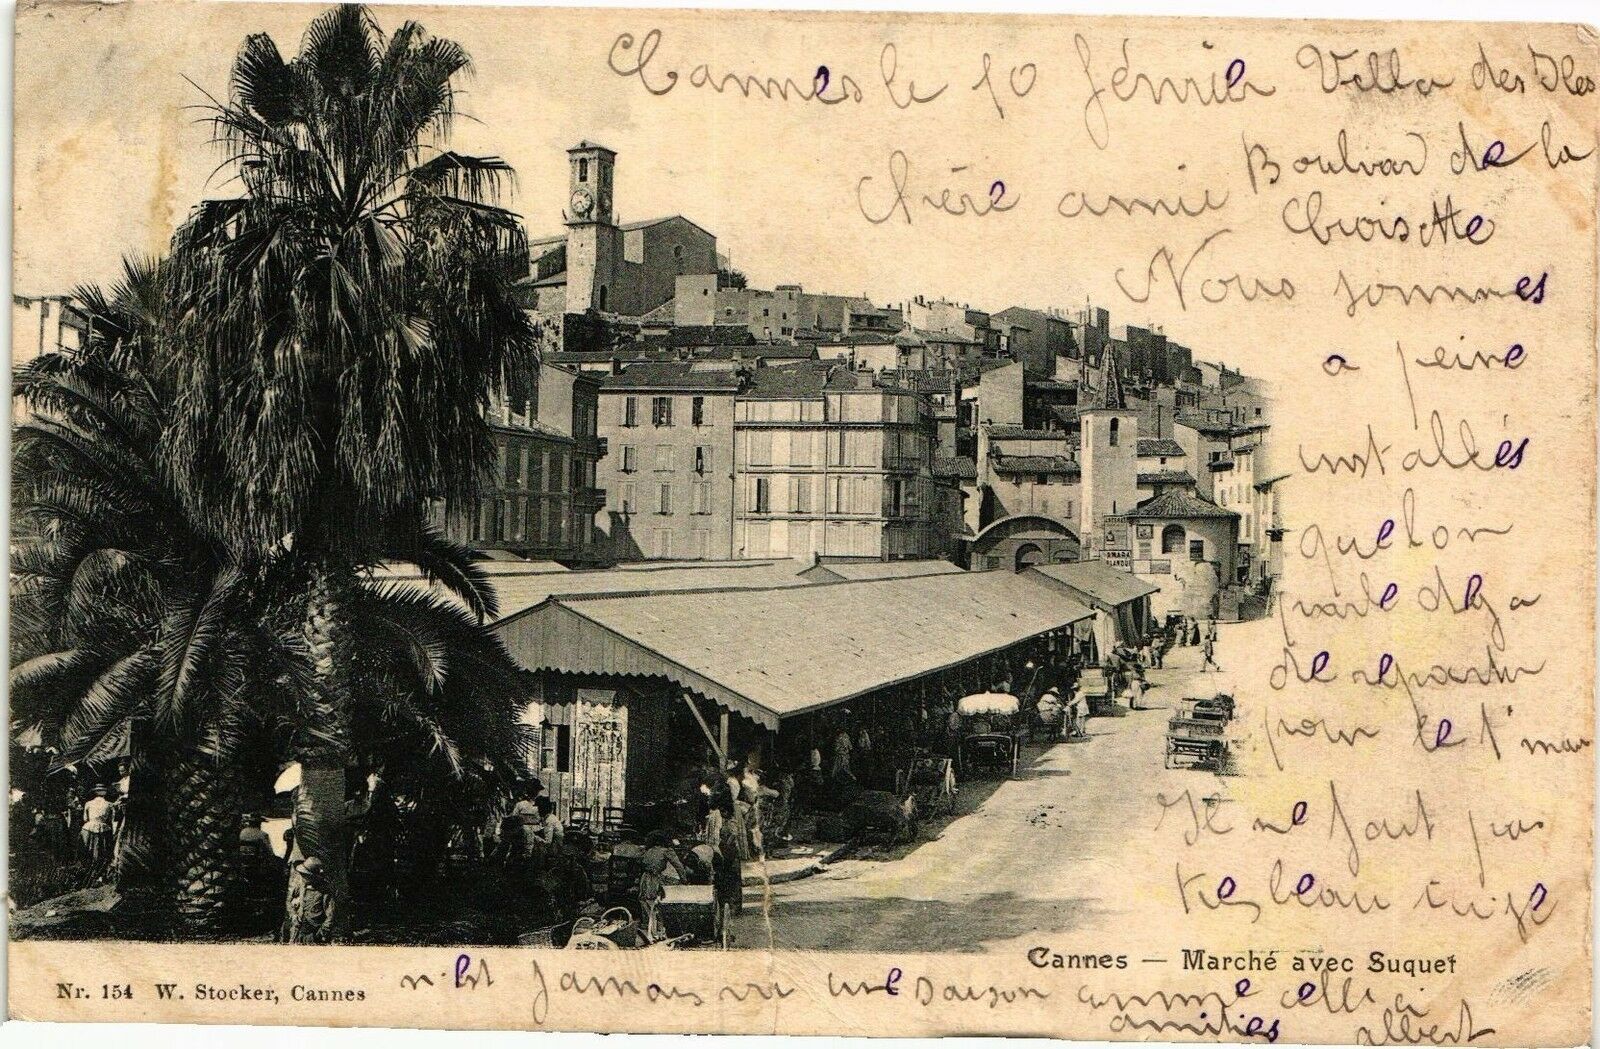 Cannes le 10 février Villa des Iles
Boulvar de la
Croisette
Chère amie
Nous sommes
a peine
installés
quelon
parle deja
de repartir
pour le 1' mars
Il ne fait pas
tres beau ici je
n'est jamais vu une saison comme celle ci
amities albert
Cannes — Marché avec Suquet
Nr. 154 W. Stocker, Cannes